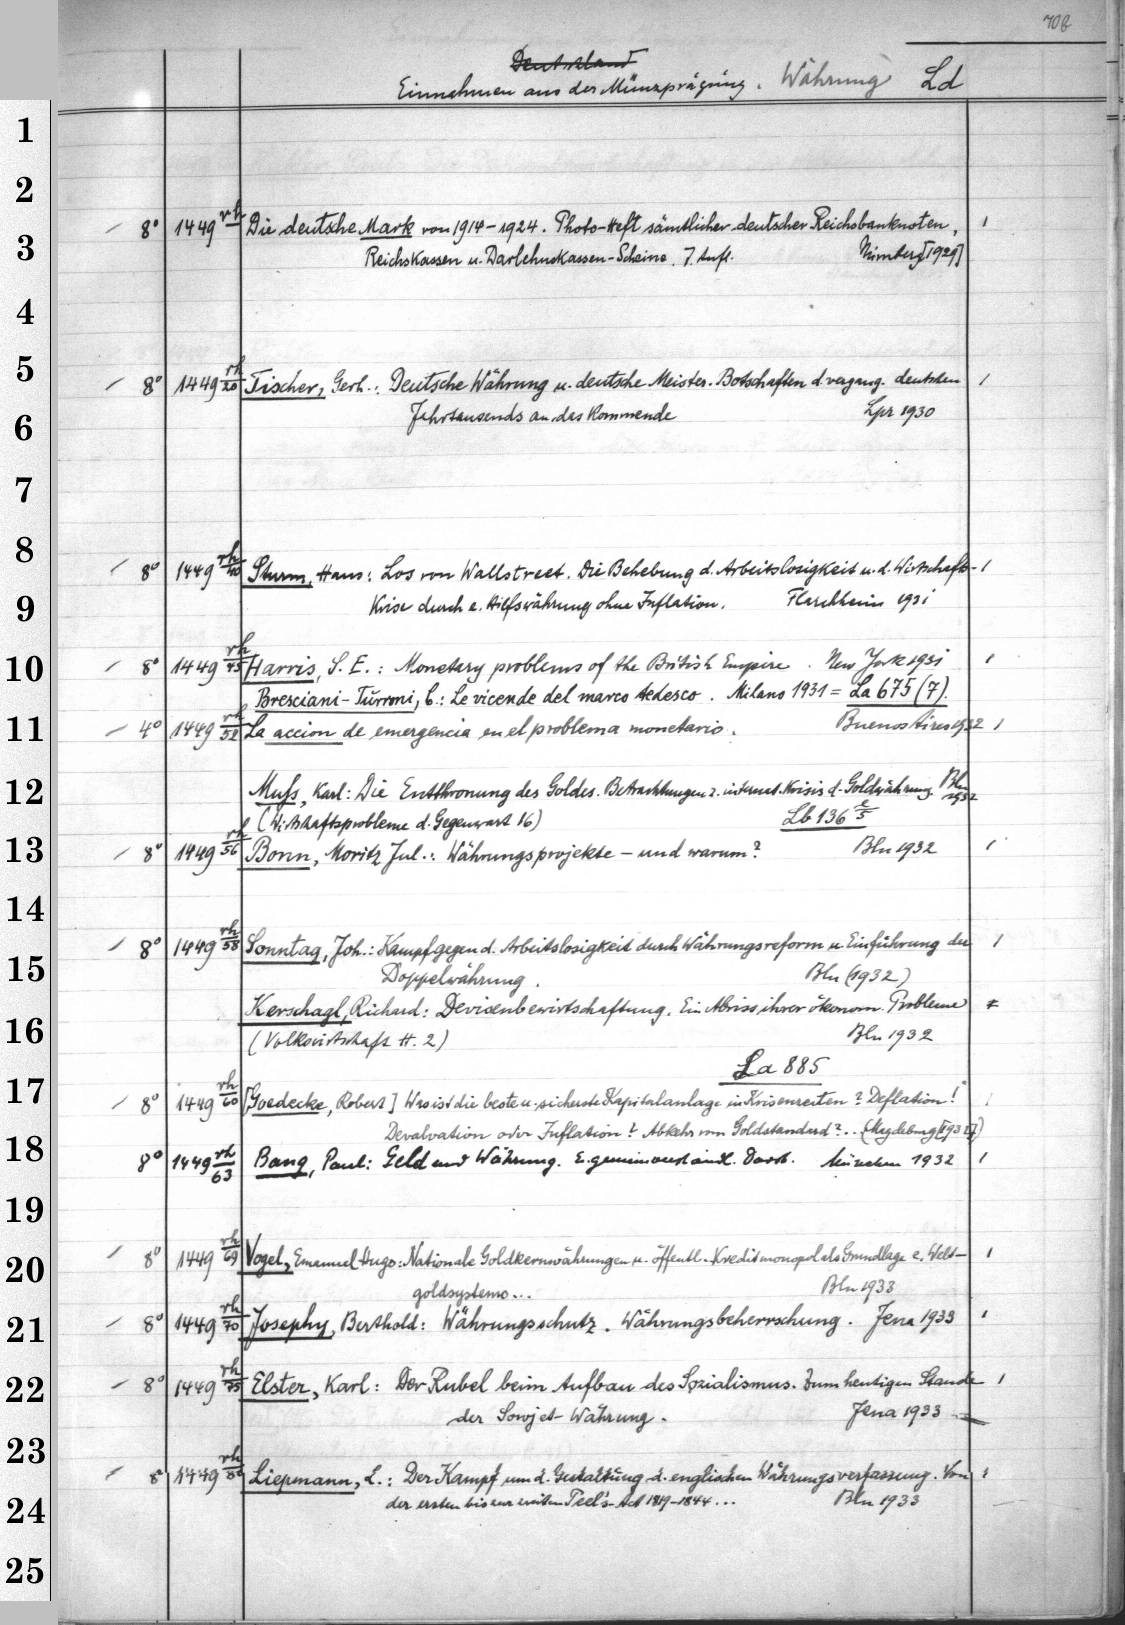 708
Deutschland
Einnehmen aus der Münzprägung. Währung Ld
1
2
8° 1449 rh Die deutsche Mark von 1914-1924. Photo-Heft sämtlicher deutscher Reichsbanknoten, 1
3 Reichskassen u. Darlehnskassen-Scheine. 7. Aufl. Nürnberg [1929]
4
5 8° 1449 rh/20 Fischer, Gerh.: Deutsche Währung u. deutsche Meister. Botschaften d. vergang. deutschen 1
6 Jahrtausends an das Kommende Lpz 1930
7
8 8° 1449 rh/40 Sturm, Hans: Los von Wallstreet. Die Behebung d. Arbeitslosigkeit u. d. Wirtschafts- 1
9 Krise durch e. Hilfswährung ohne Inflation. Flarchheim 1931
10 8° 1449 rh/45 Harris, S. E.: Monetary problems of the British Empire. New York 1931 1
Bresciani-Turroni, C.: Le vicende del marco tedesco. Milano 1931 = La 675 (7).
11 4° 1449 rh/52 La accion de emergencia en el problema monetario. Buenos Aires 1932 1
12 Muss, Karl: Die Entthronung des Goldes. Betrachtungen z. internat. Krisis d. Goldwährung. Bln 1932
(Wirtschaftsprobleme d. Gegenwart 16) Lb 136 e/5
13 8° 1449 rh/56 Bonn, Moritz Jul.: Währungsprojekte – und warum? Bln 1932 1
14
8° 1449 rh/58 Sonntag, Joh.: Kampf gegen d. Arbeitslosigkeit durch Währungsreform u. Einführung der 1
15 Doppelwährung. Bln (1932)
Kerschagl, Richard: Devisenbewirtschaftung. Ein Abriss ihrer ökonom. Probleme
16 (Volkswirtschaft H. 2) Bln 1932
La 885
17 8° 1449 rh/60 [Goedecke, Robert] Was ist die beste u. sicherste Kapitalanlage in Krisenzeiten? Deflation! 1
Devalvation oder Inflation? Abkehr vom Goldstandard?.. (Magdeburg [1932])
18 8° 1449 rh/63 Bang, Paul: Geld und Währung. E. gemeinverständl. Darst. München 1932 1
19
20 8° 1449 rh/69 Vogel, Emanuel Hugo: Nationale Goldkernwährungen u. öffentl. Kreditmonopol als Grundlage e. Welt- 1
goldsystems... Bln 1933
21 8° 1449 rh/70 Josephy, Berthold: Währungsschutz. Währungsbeherrschung. Jena 1933 1
22 8° 1449 rh/75 Elster, Karl: Der Rubel beim Aufbau des Sozialismus. Zum heutigen Stande 1
der Sowjet-Währung. Jena 1933
23
8° 1449 rh/80 Liepmann, L.: Der Kampf um d. Gestaltung d. englischen Währungsverfassung. Von 1
24 der ersten bis zur zweiten Peel's-Act 1819-1844... Bln 1933
25